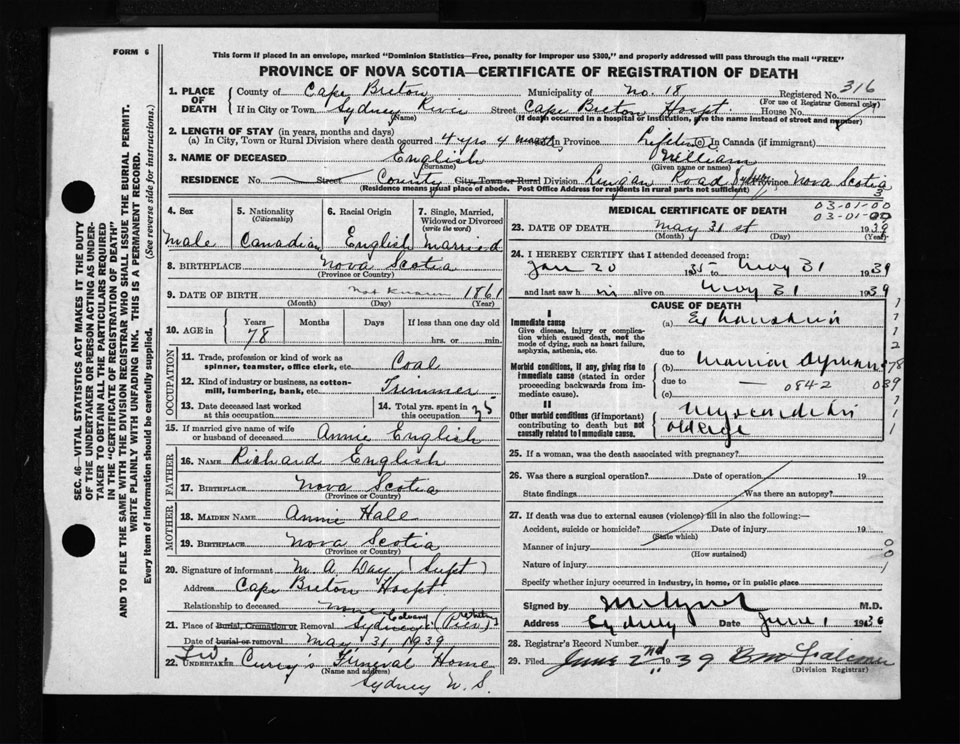 FORM 6
This form if placed in an envelope, marked "Dominion Statistics—Free, penalty for improper use $300," and properly addressed will pass through the mail "FREE"
PROVINCE OF NOVA SCOTIA—CERTIFICATE OF REGISTRATION OF DEATH
1. PLACE OF DEATH County of Cape Breton Municipality of No. 18 Registered No. 316
(For use of Registrar General only)
If in City or Town Sydney River Street Cape Breton Hospt. House No.
(Name) (If death occurred in a hospital or institution, give the name instead of street and number)
2. LENGTH OF STAY (in years, months and days)
(a) In City, Town or Rural Division where death occurred 4 yrs 4 months In Province Lifetime (c) In Canada (if immigrant)
3. NAME OF DECEASED English William
(Surname) (Given name or names)
RESIDENCE No. Street County City, Town or Rural Division Lingan Road Sydney Province Nova Scotia
(Residence means usual place of abode. Post Office Address for residents in rural parts not sufficient)
4. Sex
Male
5. Nationality
(Citizenship)
Canadian
6. Racial Origin
English
7. Single, Married, Widowed or Divorced
(write the word)
Married
8. BIRTHPLACE Nova Scotia
(Province or Country)
9. DATE OF BIRTH Not Known 1861
(Month) (Day) (Year)
10. AGE in Years Months Days If less than one day old
78 hrs. or min.
OCCUPATION
11. Trade, profession or kind of work as spinner, teamster, office clerk, etc. Coal
12. Kind of industry or business, as cotton-mill, lumbering, bank, etc. Trimmer
13. Date deceased last worked at this occupation
14. Total yrs. spent in this occupation 35
15. If married give name of wife or husband of deceased Annie English
FATHER
16. NAME Richard English
17. BIRTHPLACE Nova Scotia
(Province or Country)
MOTHER
18. MAIDEN NAME Annie Hall
19. BIRTHPLACE Nova Scotia
(Province or Country)
20. Signature of informant M. A. Day (Supt)
Address Cape Breton Hospt
Relationship to deceased none
21. Place of Burial, Cremation or Removal Sydney (Whitney Pier)
Date of burial or removal May 31, 1939
22. UNDERTAKER Curry's Funeral Home
(Name and address)
Sydney N. S.
MEDICAL CERTIFICATE OF DEATH
03-01-00
03-01-00
23. DATE OF DEATH May 31 st 1939
(Month) (Day) (Year)
24. I HEREBY CERTIFY that I attended deceased from:
Jan 20 1935 to May 31 1939
and last saw h im alive on May 31 1939
CAUSE OF DEATH
I
Immediate cause
Give disease, injury or complication which caused death, not the mode of dying, such as heart failure, asphyxia, asthenia, etc.
(a) Exhaustion
due to
Morbid conditions, if any, giving rise to immediate cause (stated in order proceeding backwards from immediate cause).
(b)
due to — 084-2 039
(c)
II
Other morbid conditions (if important) contributing to death but not causally related to immediate cause.
Myocarditis
old age
25. If a woman, was the death associated with pregnancy?
26. Was there a surgical operation? Date of operation 19
State findings Was there an autopsy?
27. If death was due to external causes (violence) fill in also the following:—
Accident, suicide or homicide? Date of injury 19
(State which)
Manner of injury
(How sustained)
Nature of injury
Specify whether injury occurred in industry, in home, or in public place
Signed by M.D.
Address Sydney Date June 1 1936
28. Registrar's Record Number
29. Filed June 2nd 1939
(Division Registrar)
SEC. 46—VITAL STATISTICS ACT MAKES IT THE DUTY
OF THE UNDERTAKER OR PERSON ACTING AS UNDER-
TAKER TO OBTAIN ALL THE PARTICULARS REQUIRED
IN THE "CERTIFICATE OF REGISTRATION OF DEATH"
AND TO FILE THE SAME WITH THE DIVISION REGISTRAR WHO SHALL ISSUE THE BURIAL PERMIT.
WRITE PLAINLY WITH UNFADING INK. THIS IS A PERMANENT RECORD.
Every item of information should be carefully supplied. (See reverse side for instructions.)